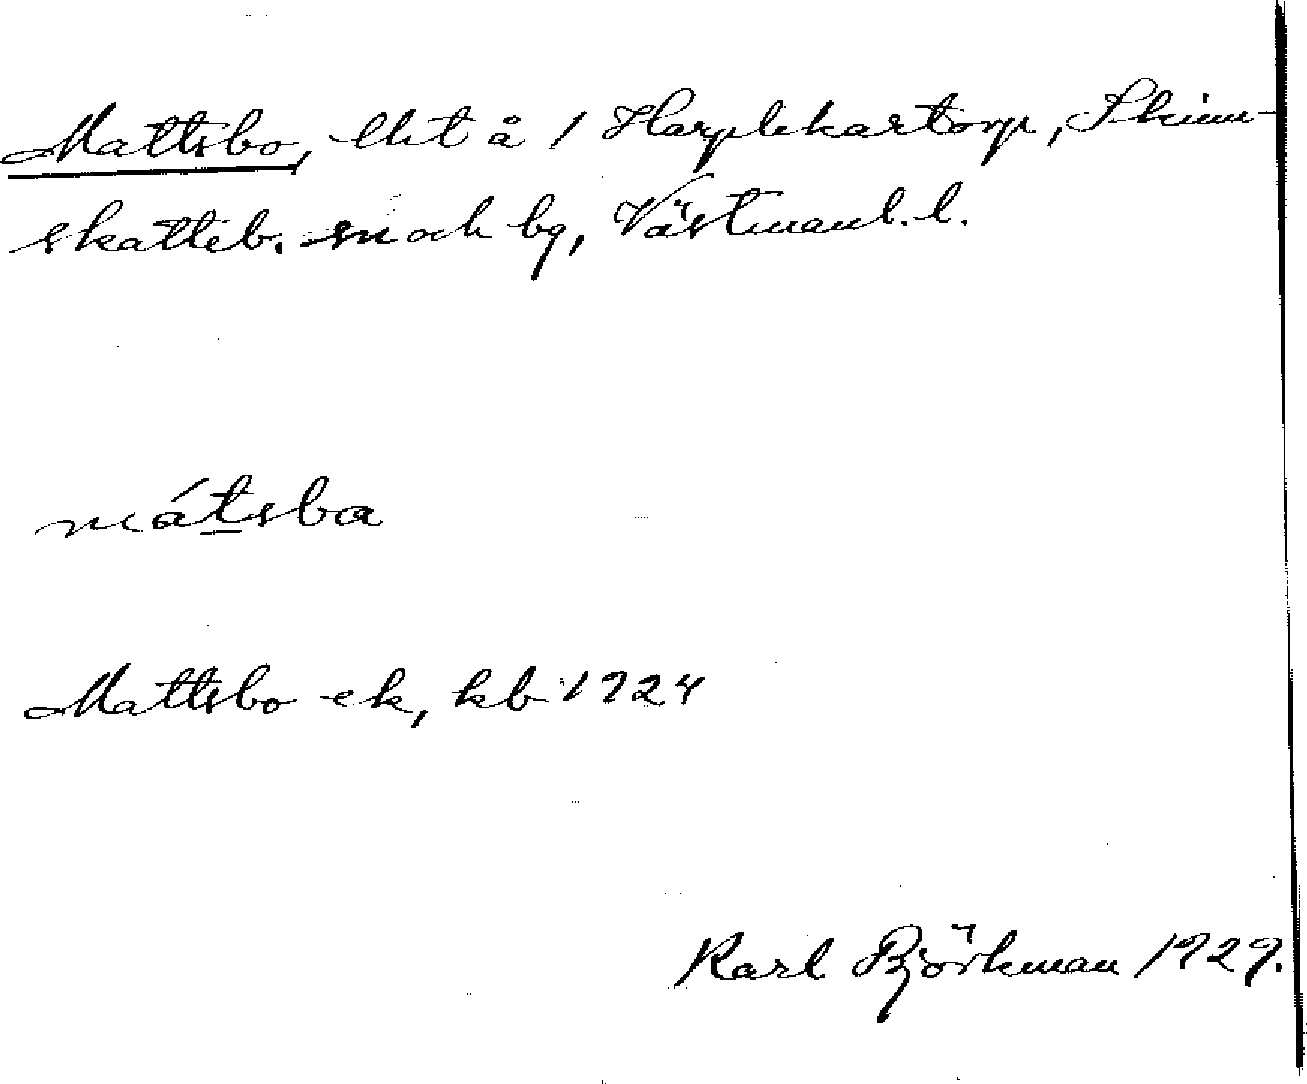 Mattsbo, lht å 1 Harplekartorp, Skinn-
skatteb. sn och bg, Västmanl. l.
mátsba
Mattsbo ek, kb 1924
Karl Björkman 1929.